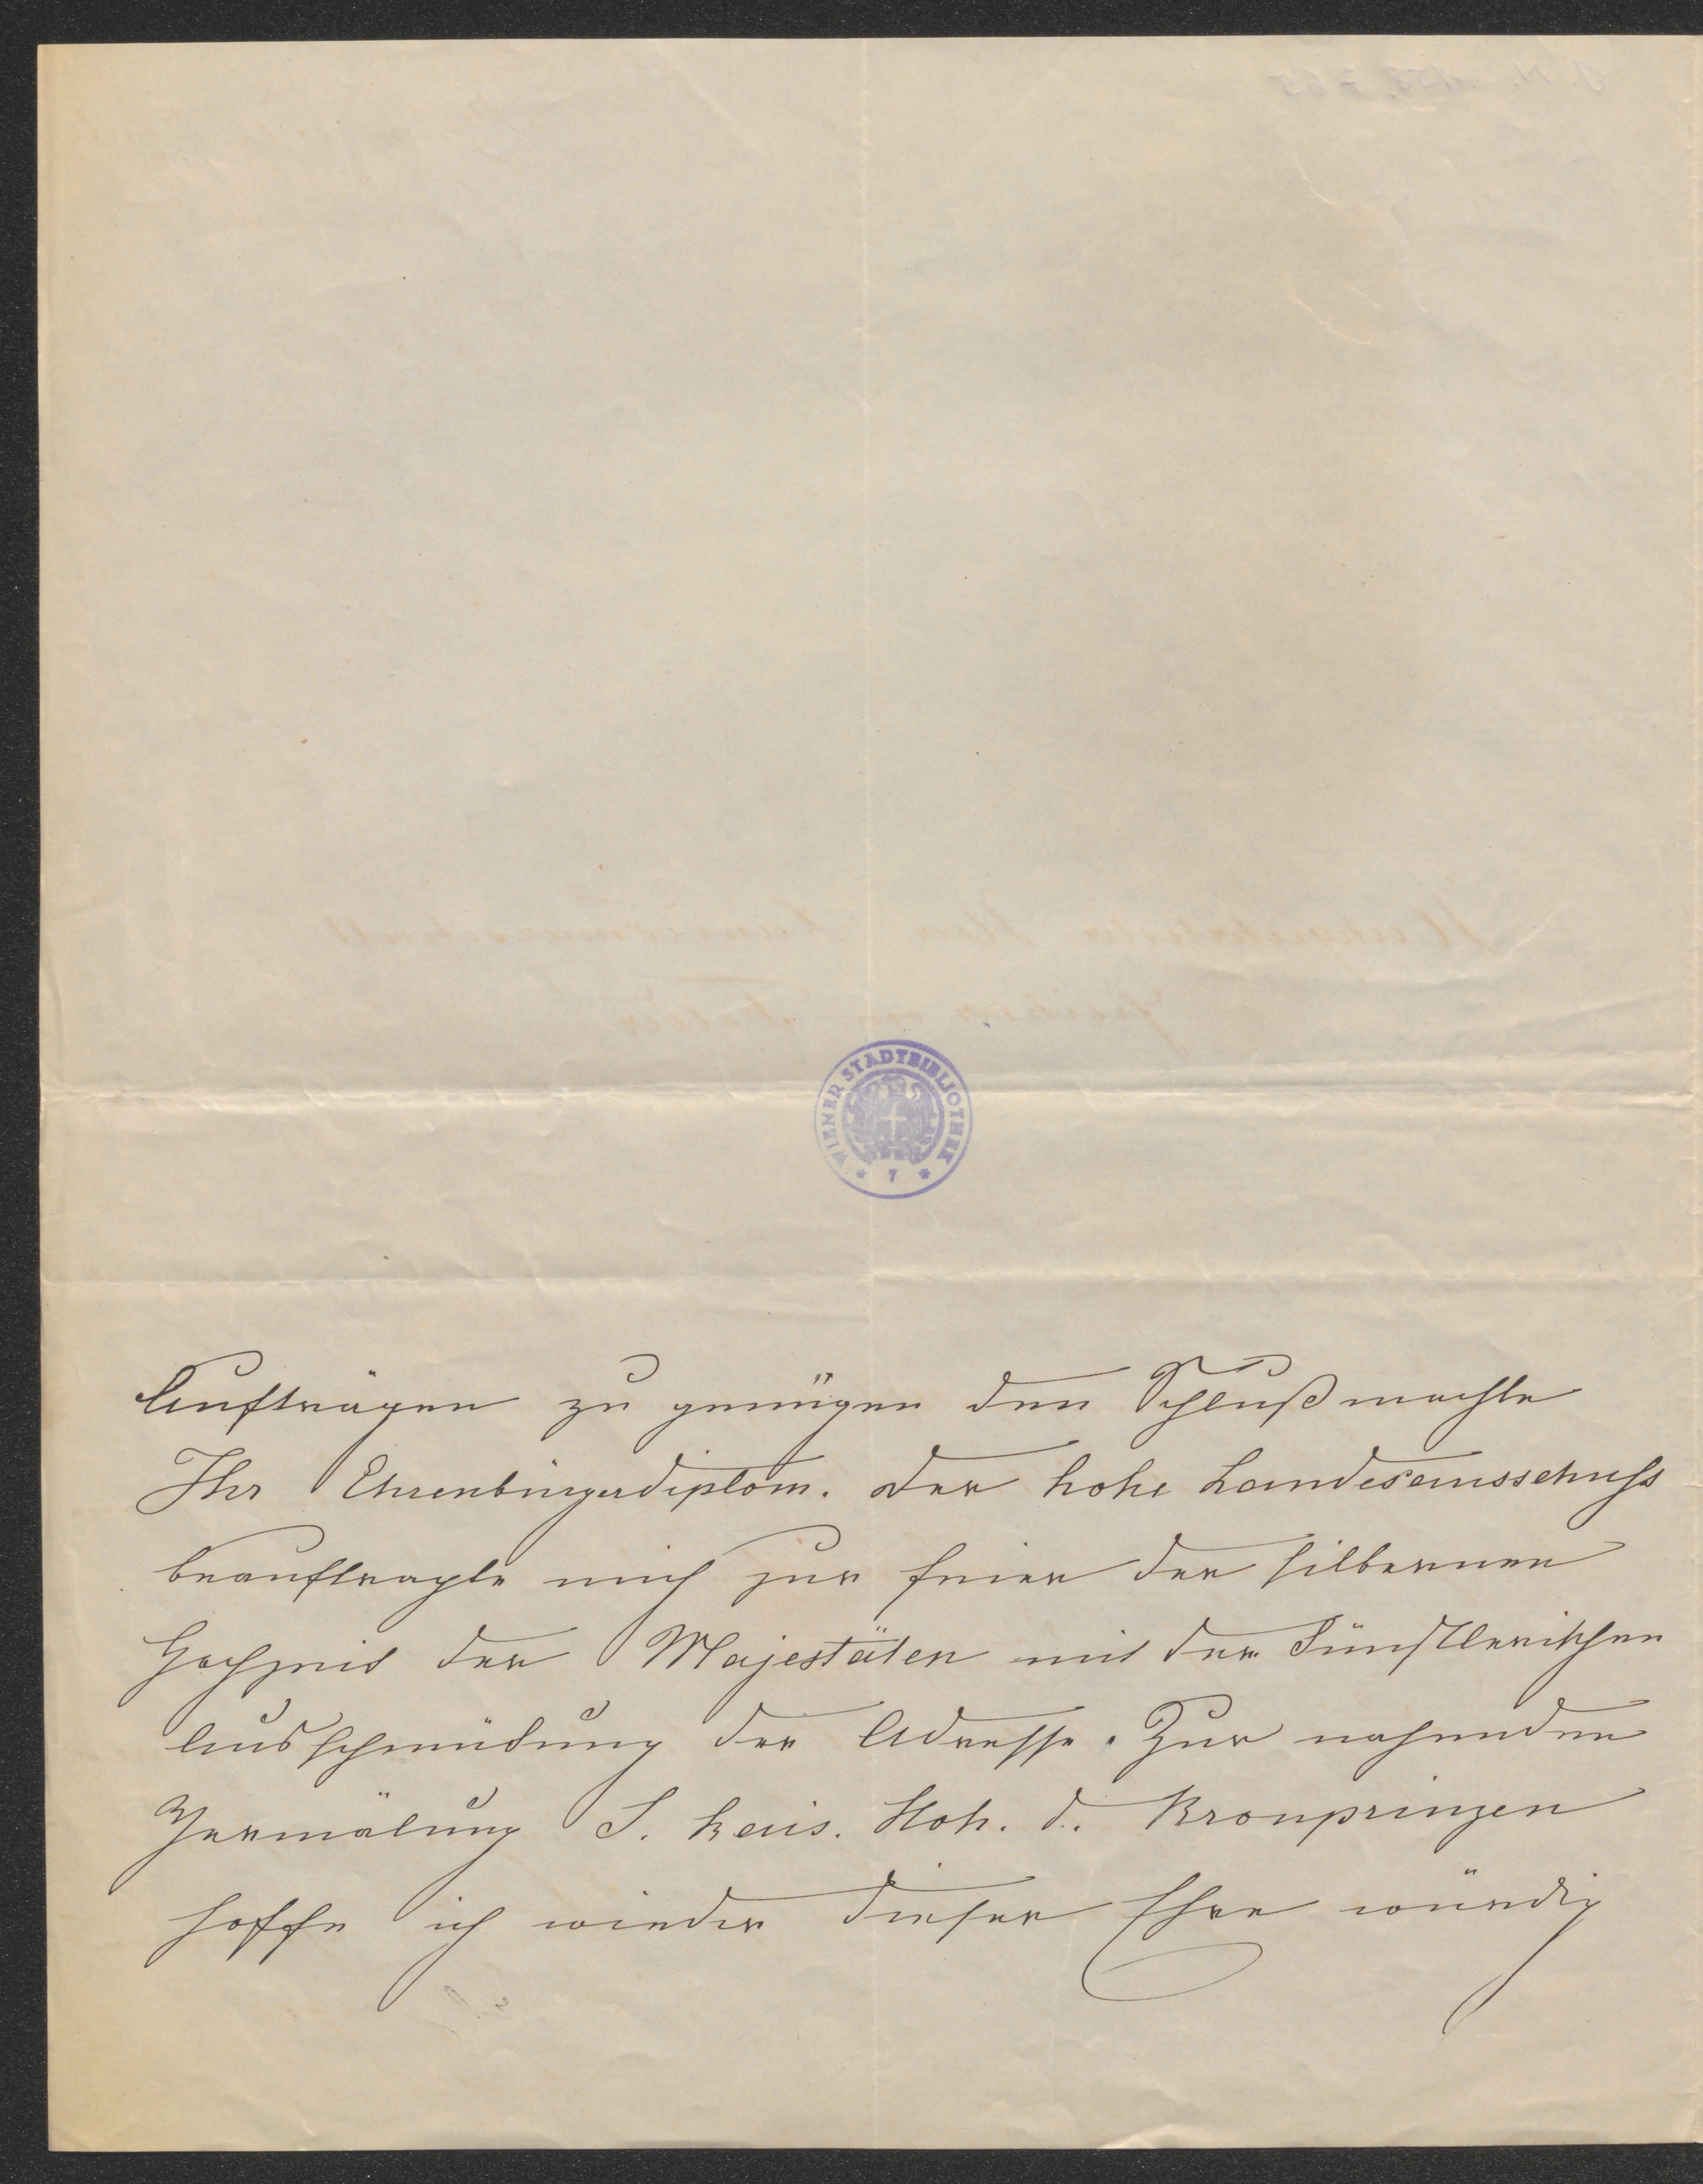 WIENER STADTBIBLIOTHEK
* 7 *
Aufträgen zu genügen den Schluß machte
Ihr Ehrenbürgerdiplom. Der hohe Landesausschuß
beauftragte mich zur Feier der silbernen
Hochzeit der Majestäten mit der künstlerischen
Ausschmückung der Adresse. Zur nahenden
Vermälung S. kais. Hoh. d. Kronprinzen
hoffe ich wieder dieser Ehre würdig